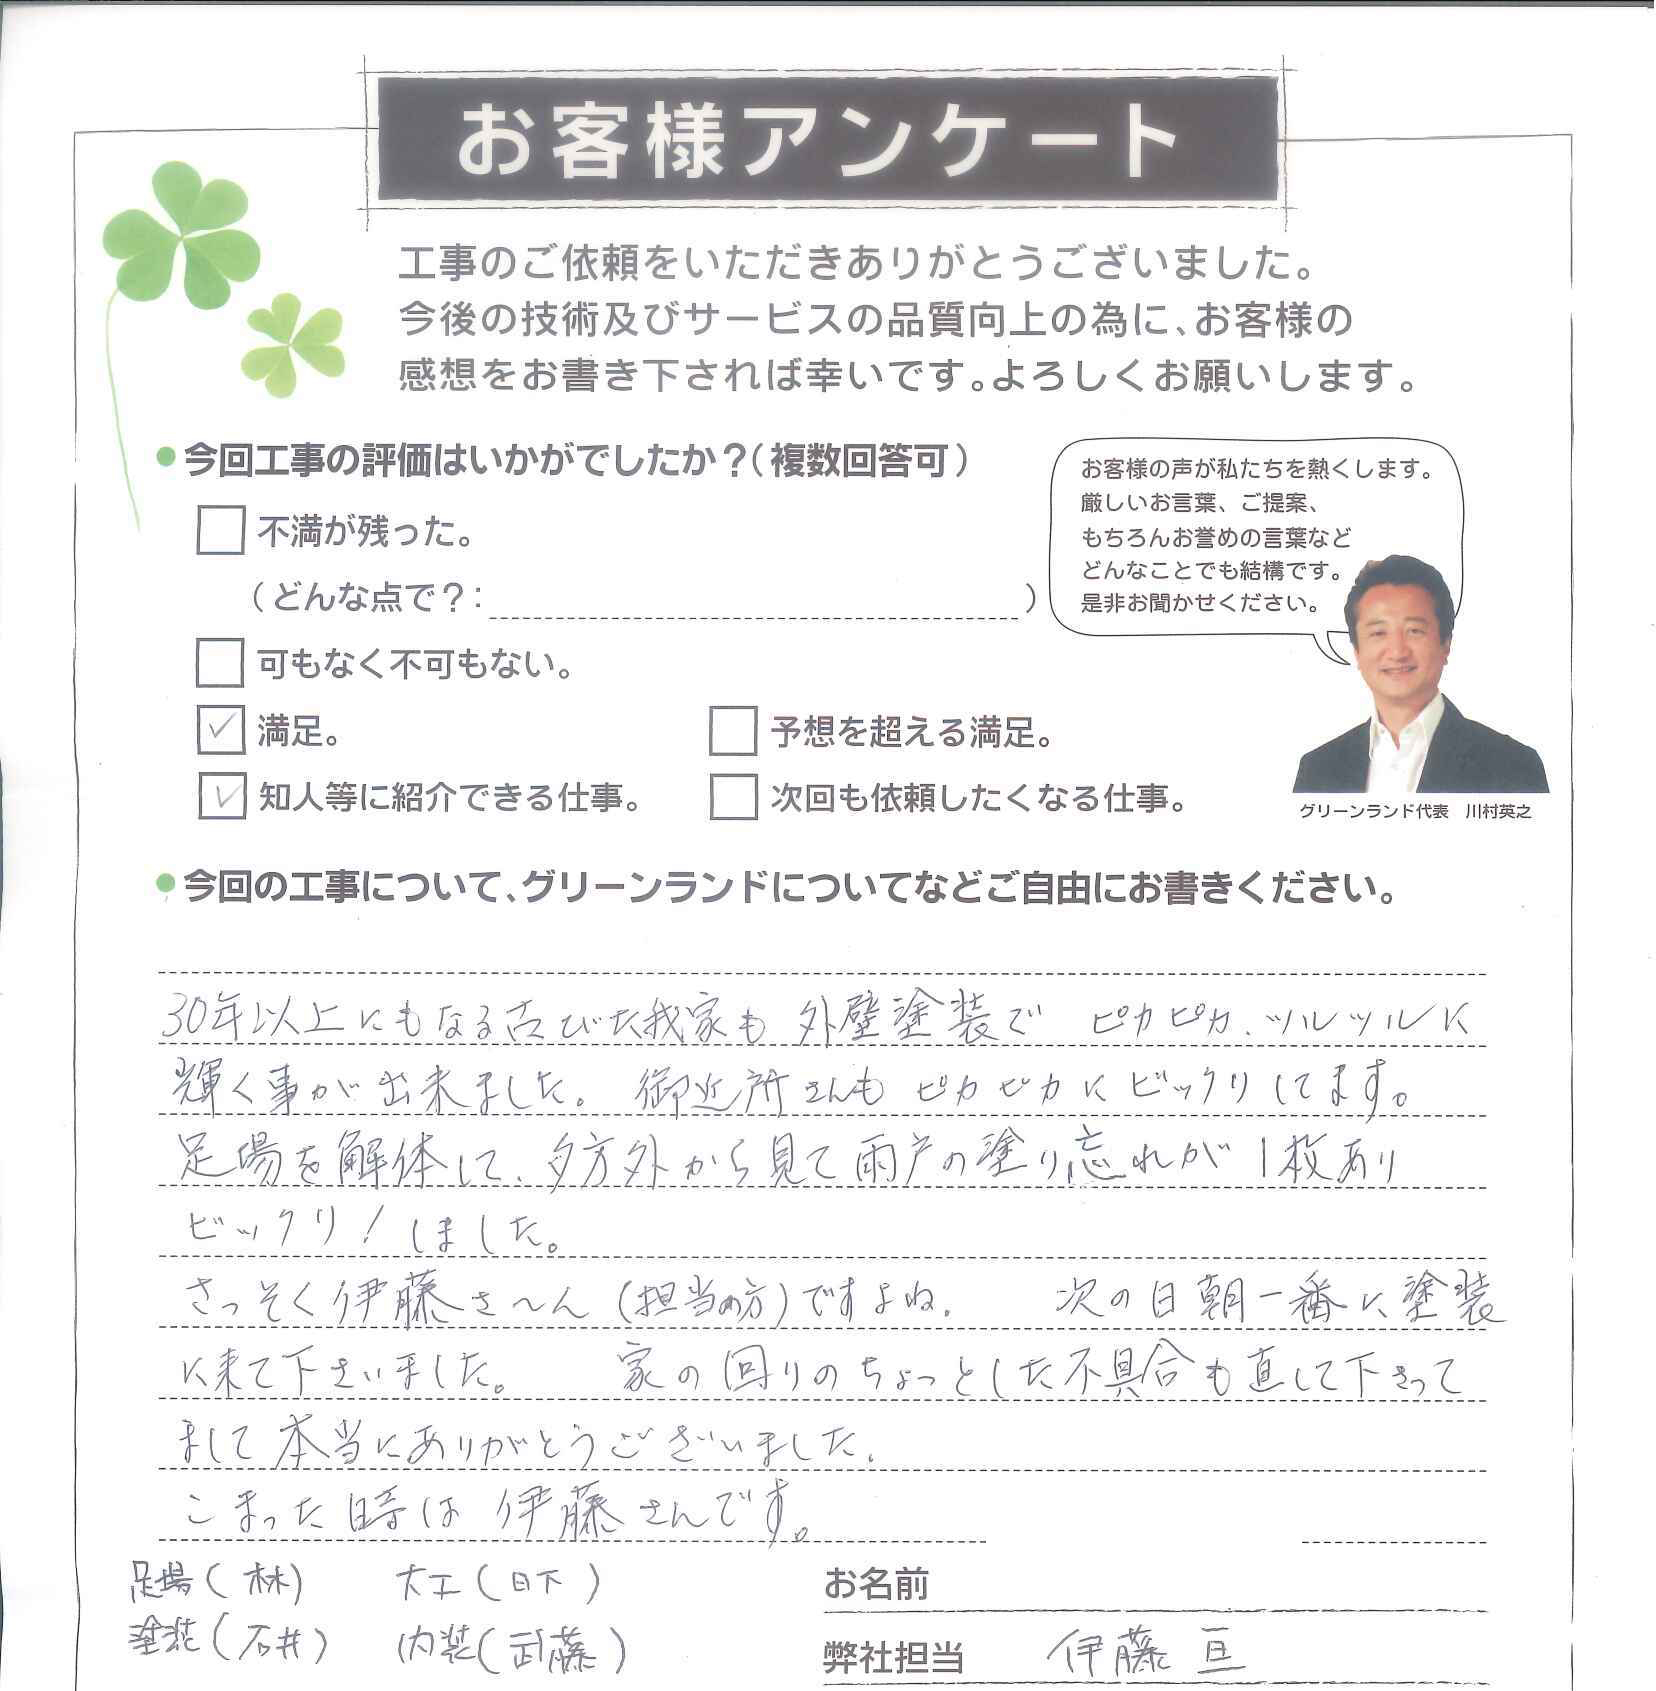 お客様アンケート
工事のご依頼をいただきありがとうございました。
今後の技術及びサービスの品質向上の為に、お客様の
感想をお書き下されば幸いです。よろしくお願いします。
今回工事の評価はいかがでしたか?(複数回答可)
お客様の声が私たちを熱くします。
厳しいお言葉、ご提案、
もちろんお誉めの言葉など
どんなことでも結構です。
是非お聞かせください。
不満が残った。
(どんな点で?: )
可もなく不可もない。
満足。 予想を超える満足。
知人等に紹介できる仕事。 次回も依頼したくなる仕事。
グリーンランド代表 川村英之
今回の工事について、グリーンランドについてなどご自由にお書きください。
30年以上にもなる古びた我家も 外壁塗装で ピカピカ、ツルツルに
輝く事が出来ました。 御近所さんも ピカピカに ビックリしてます。
足場を解体して、夕方外から見て雨戸の塗り忘れが 1枚あり
ビックリ! しました。
さっそく伊藤さ〜ん (担当の方)ですよね。 次の日朝一番に塗装
に来て下さいました。 家の回りのちょっとした不具合も直して下さって
まして本当にありがとうございました。
こまった時は 伊藤さんです。
足場(林) 大工(日下)
塗装(石井) 内装(武藤)
お名前
弊社担当 伊藤 亘